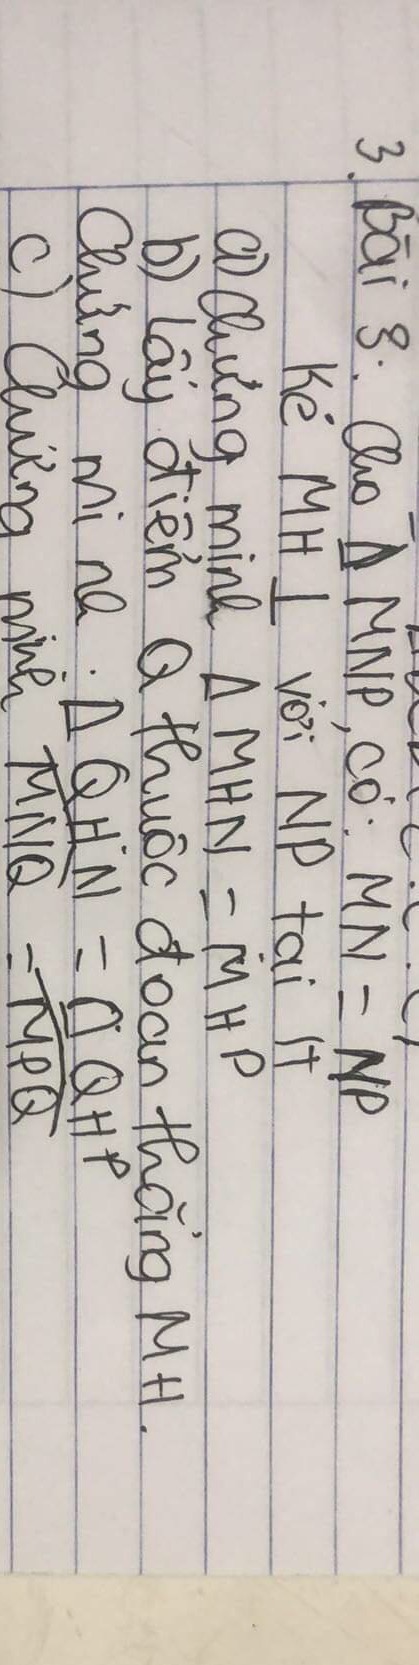 3. Bài 3. Cho Δ MNP, có: MN = NP
Kẻ MH ⊥ với NP tại H
a) Chứng minh Δ MHN = MHP
b) Lấy điểm Q thuộc đoạn thẳng MH.
Chứng minh: Δ QHN = Δ QHP
c) Chứng minh MNQ = MPQ